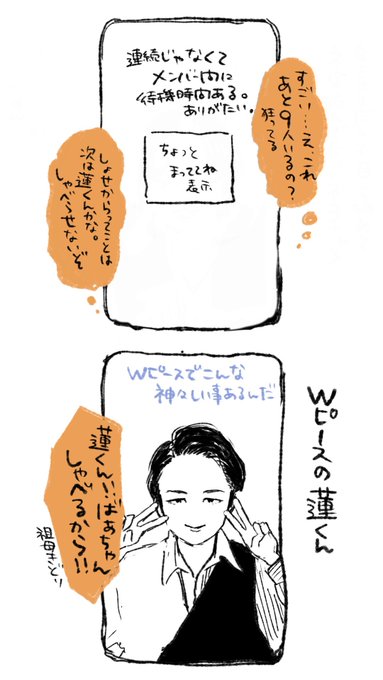 連続じゃなくて
メンバー内に
待機時間ある。
ありがたい。
すごい…え、これ
あと9人いるの?
狂ってる
ちょっと
まっててね
表示
しょせからってことは
次は蓮くんかな。
しゃべらせないぞ
Wピースでこんな
神々しい事あるんだ
Wピースの蓮くん
蓮くん!!ばぁちゃん
しゃべるから!!
祖母きどり